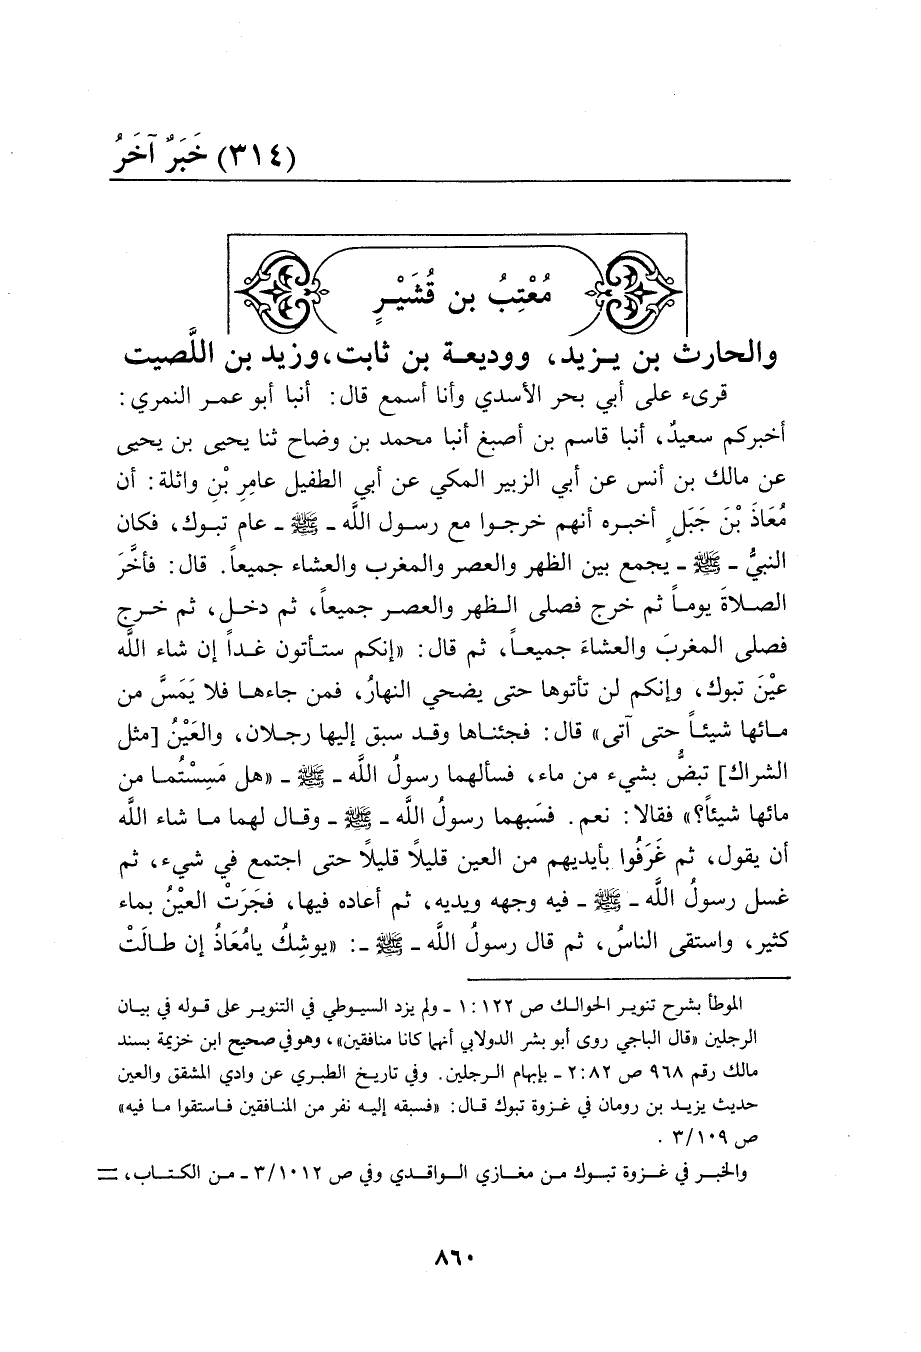 (٣١٤) خَبَرٌ آخَرُ
مُعْتِبُ بن قُشَيْرٍ
والحارث بن يـزيد، ووديعـة بن ثابت، وزيد بن اللَّصيت
قرىء على أبي بحر الأسدي وأنا أسمع قال: أنبا أبو عمر النمري:
أخبركم سعيدٌ، أنبا قاسم بن أصبغ أنبا محمد بن وضاح ثنا يحيى بن يحيى
عن مالك بن أنس عن أبي الزبير المكي عن أبي الطفيل عامِرِ بْنِ واثلة: أن
مُعَاذَ بْنَ جَبَلٍ أخبره أنهم خرجوا مع رسول اللَّه ـ ﷺ ـ عام تبوك، فكان
النبيُّ ـ ﷺ ـ يجمع بين الظهر والعصر والمغرب والعشاء جميعاً. قال: فأخَّرَ
الصلاةَ يوماً ثم خرج فصلى الظهر والعصر جميعاً، ثم دخل، ثم خرج
فصلى المغربَ والعشاءَ جميعاً، ثم قال: «إنكم ستأتون غداً إن شاء اللَّه
عيْنَ تبوك، وإنكم لن تأتوها حتى يضحي النهارُ، فمن جاءها فلا يَمَسَّ من
مائها شيئاً حتى آتى» قال: فجئناها وقد سبق إليها رجلان، والعَيْنُ [مثل
الشراك] تبضُّ بشيء من ماء، فسألهما رسولُ اللَّه ـ ﷺ ـ «هل مَسِسْتُما من
مائها شيئاً؟» فقالا: نعم. فسَبهما رسولُ اللَّه ـ ﷺ ـ وقال لهما ما شاء اللَّه
أن يقول، ثم غَرَفُوا بأيديهم من العين قليلًا قليلًا حتى اجتمع في شيء، ثم
غسل رسولُ اللَّه ـ ﷺ ـ فيه وجهه ويديه، ثم أعاده فيها، فجَرَتْ العيْنُ بماء
كثير، واستقى الناسُ، ثم قال رسولُ اللَّه ـ ﷺ ـ: «يوشِكُ يامُعَاذُ إن طالَتْ
الموطأ بشرح تنوير الحوالك ص ١:١٢٢ ـ ولم يزد السيوطي في التنوير على قوله في بيان
الرجلين «قال الباجي روى أبو بشر الدولابي أنهما كانا منافقين»، وهو في صحيح ابن خزيمة بسند
مالك رقم ٩٦٨ ص ٢:٨٢ ـ بإبهام الرجلين. وفي تاريخ الطبري عن وادي المشقق والعين
حديث يزيد بن رومان في غزوة تبوك قال: «فسبقه إليه نفر من المنافقين فاستقوا ما فيه»
ص ٣/١٠٩ .
والخبر في غزوة تبوك من مغازي الواقدي وفي ص ٣/١٠١٢ ـ من الكتاب، =
٨٦٠